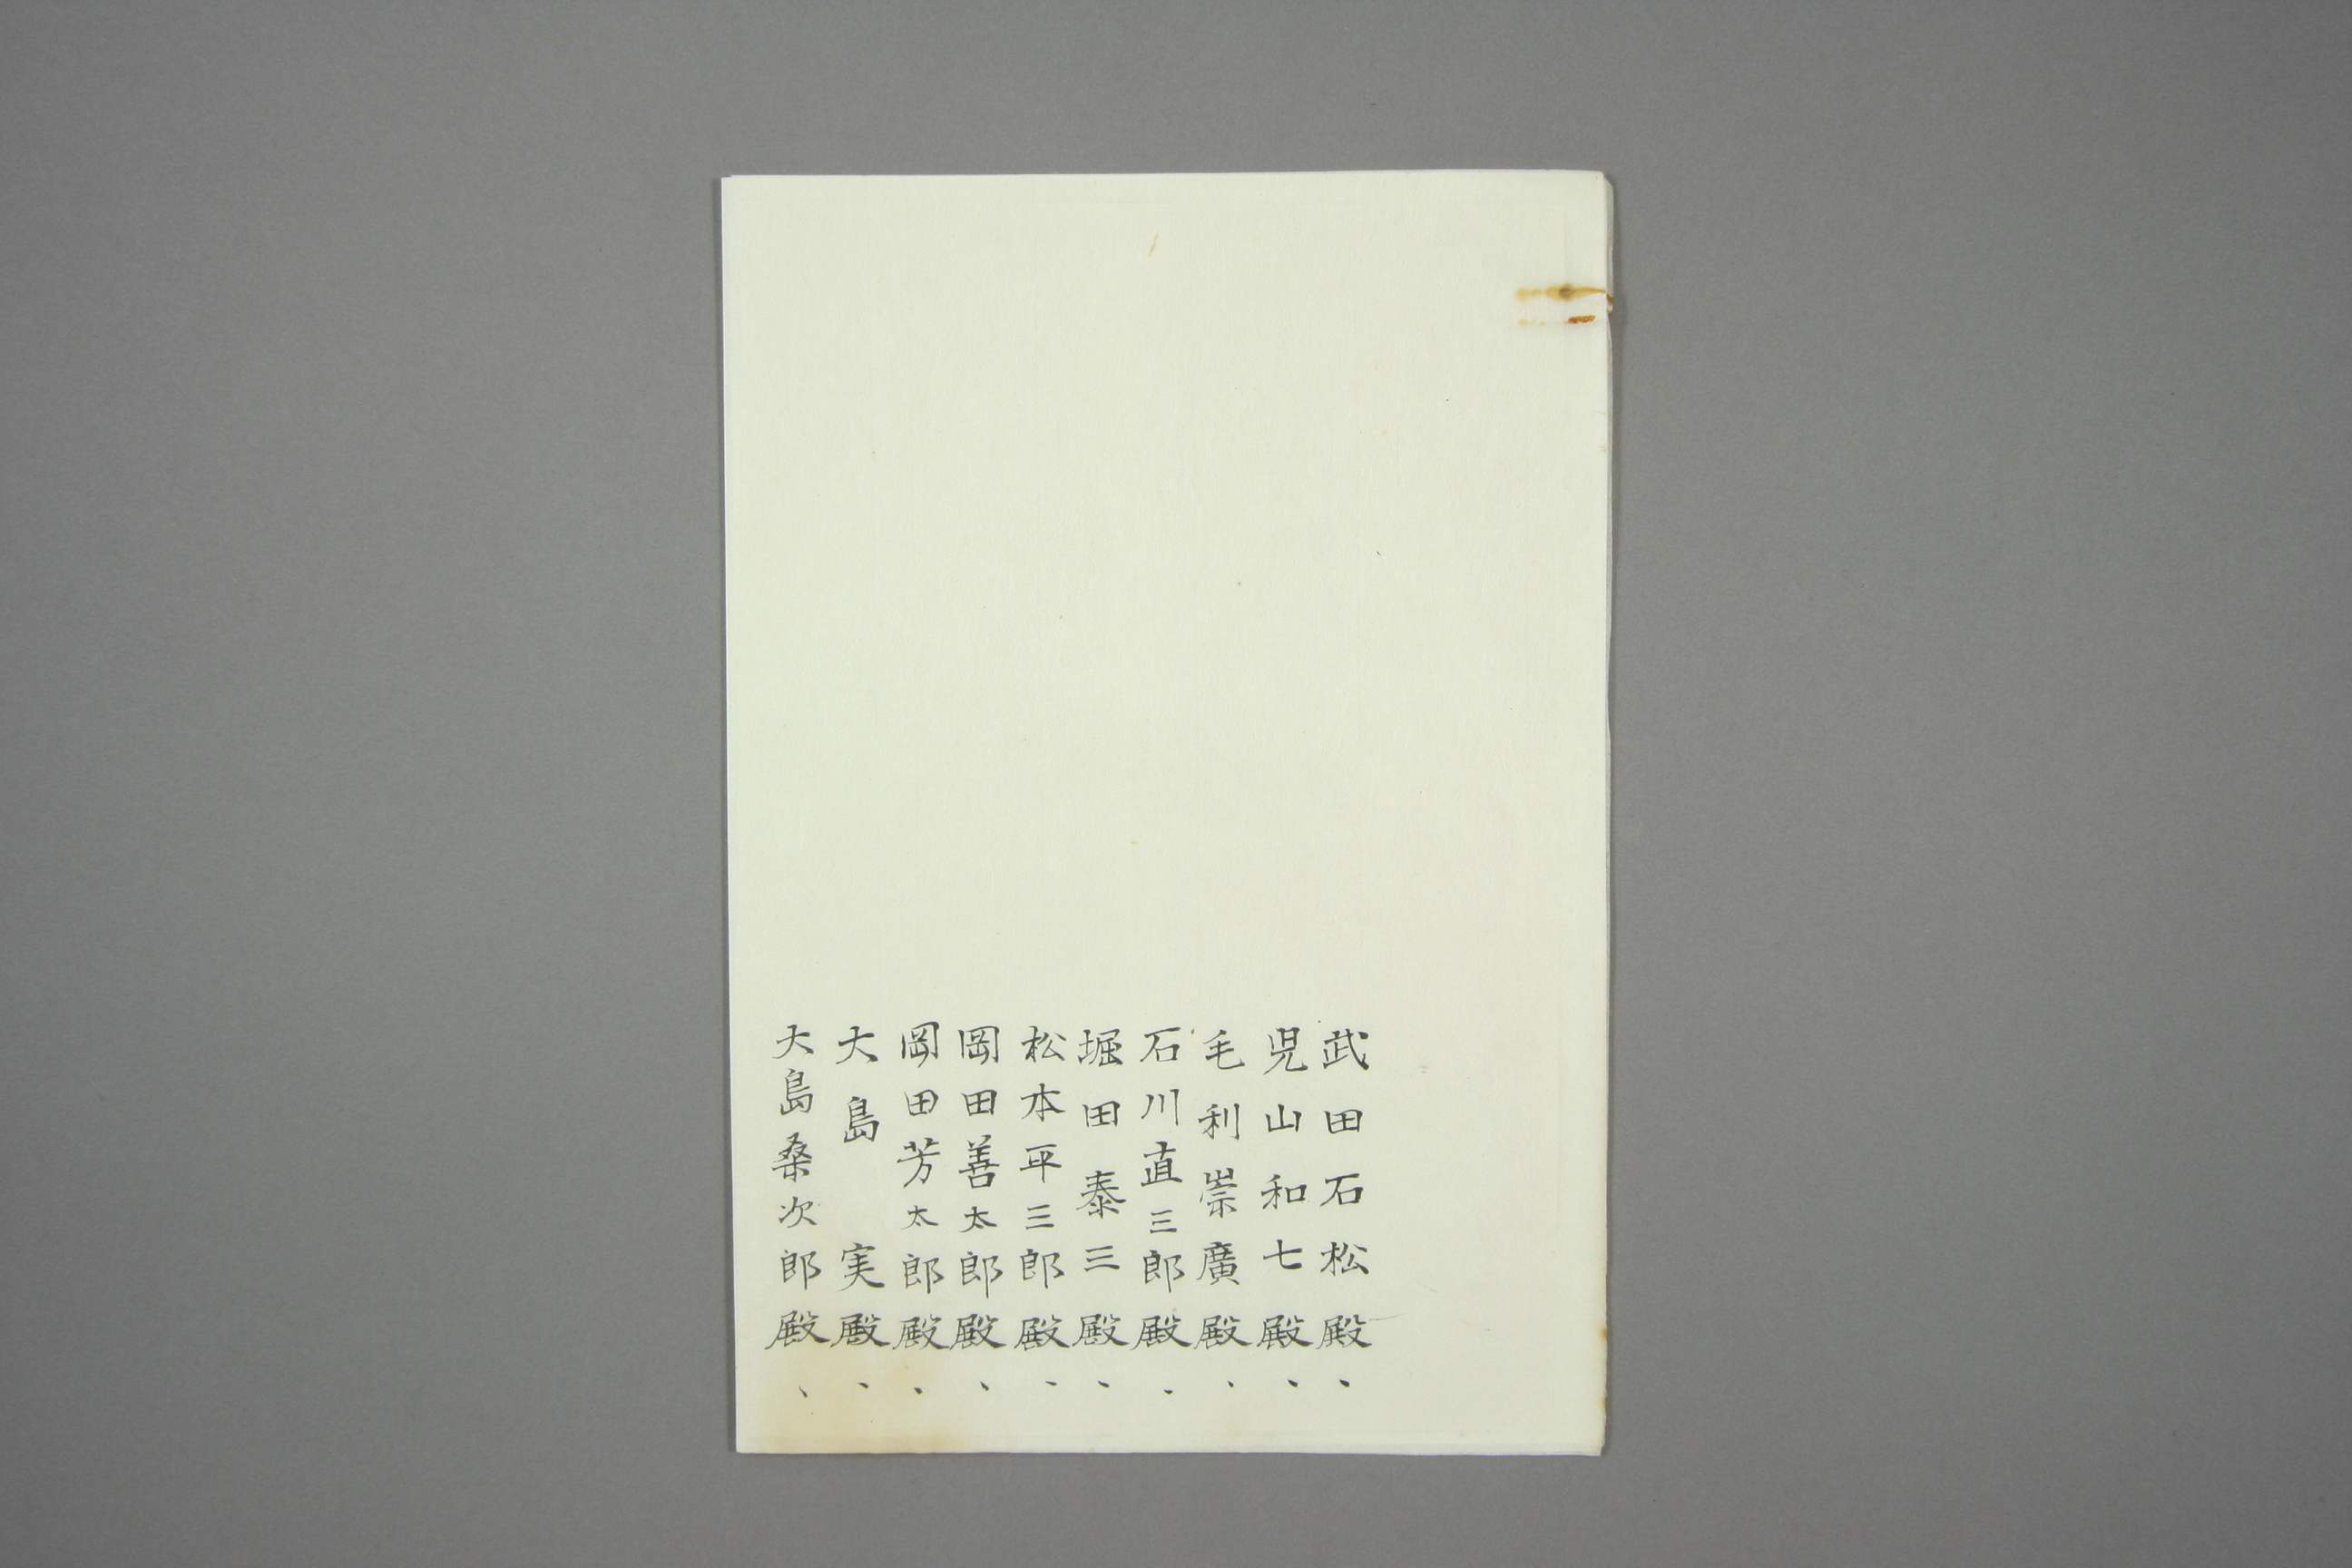 武田石松殿、
児山和七殿、
毛利崇廣殿、
石川直三郎殿、
堀田泰三殿、
松本平三郎殿、
岡田善太郎殿、
岡田芳太郎殿、
大島実殿、
大島桑次郎殿、